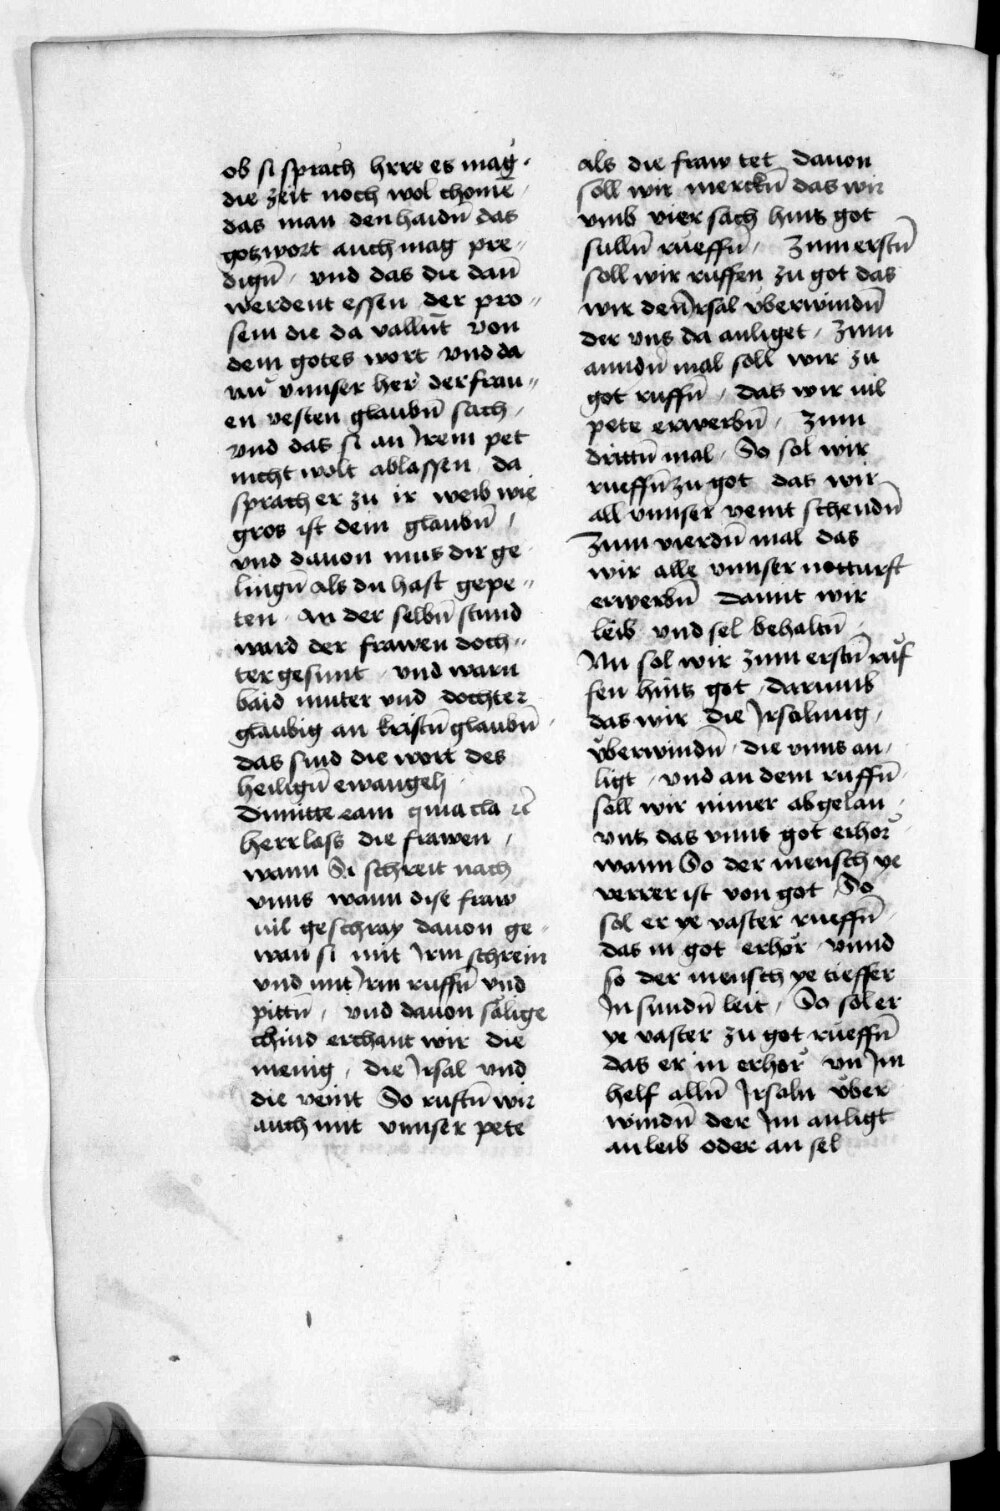 ob si sprach hrre es mag
die zeit noch wol chomē
das man den haidn̄ das
gotzwort auch mag pre„
dign̄ / vnd das die dan̄
werdent essen der pro„
sem die da vallnt̄ von
dem gotes wort vnd da
nu vnnser her der frau„
en vesten glaubn̄ sach /
vnd das si an Irem pet
nicht wolt ablassen da
sprach er zu ir weib wie
gros ist dein glaubn̄ /
vnd dauon mus dir ge
lingn̄ als du hast gepe„
ten · An der selbn̄ stund
ward der frawen doch„
ter gesunt · vnd warn
baid muter vnd dochter
glaubig an kristn̄ glaubn̄ ·
das sind die wort des
heilign̄ ewangelj ·
Dimitte eam quia cla rc̄
herr lass die frawen /
wann Si schreit nach
vnns wann dise fraw
vil geschray dauon ge„
wan si mit Irm schrein
vnd mit Irm ruffn̄ vnd
pittn̄ / vnd dauon sälige
chind erchant wir die
menig / die Irsal vnd
die veint So ruftn̄ wir
auch mit vnnser pete
als die fraw tet dauon
soll wir merckn̄ das wir
vmb vier sach hintz got
sulln̄ rueffn̄ / Zum erstn̄
soll wir ruffen zu got das
wir den̄ Irsal vberwindn̄
der vns da anliget / Zum
anndn̄ mal soll wir zu
got ruffn̄ / das wir vil
pete erwerbn̄ / Zum
drittn̄ mal · So sol wir
rueffn̄ zu got das wir
all vnnser veint schendn̄
Zum vierdn̄ mal das
wir alle vnnser notturft
erwerbn̄ damit wir
leib vnd sel behaltn̄ ·
Nu sol wir zum erstn̄ růf
fen hintz got darumb
das wir die Irsalung /
vberwindn̄ / die vnns an /
ligt / vnd an dem ruffn̄
soll wir nimer abgelan /
vntz das vnns got erhor
wann So der mensch ye
verrer ist von got So
sol er ye vaster rueffn̄
das in got erhör vnnd
so der mensch ye tieffer
In sundn̄ leit / So sol er
ye vaster zu got rueffn̄
das er in erhör vn̄ Im
helf alln̄ Irsaln vber
windn̄ der Im anligt
an leib oder an sel